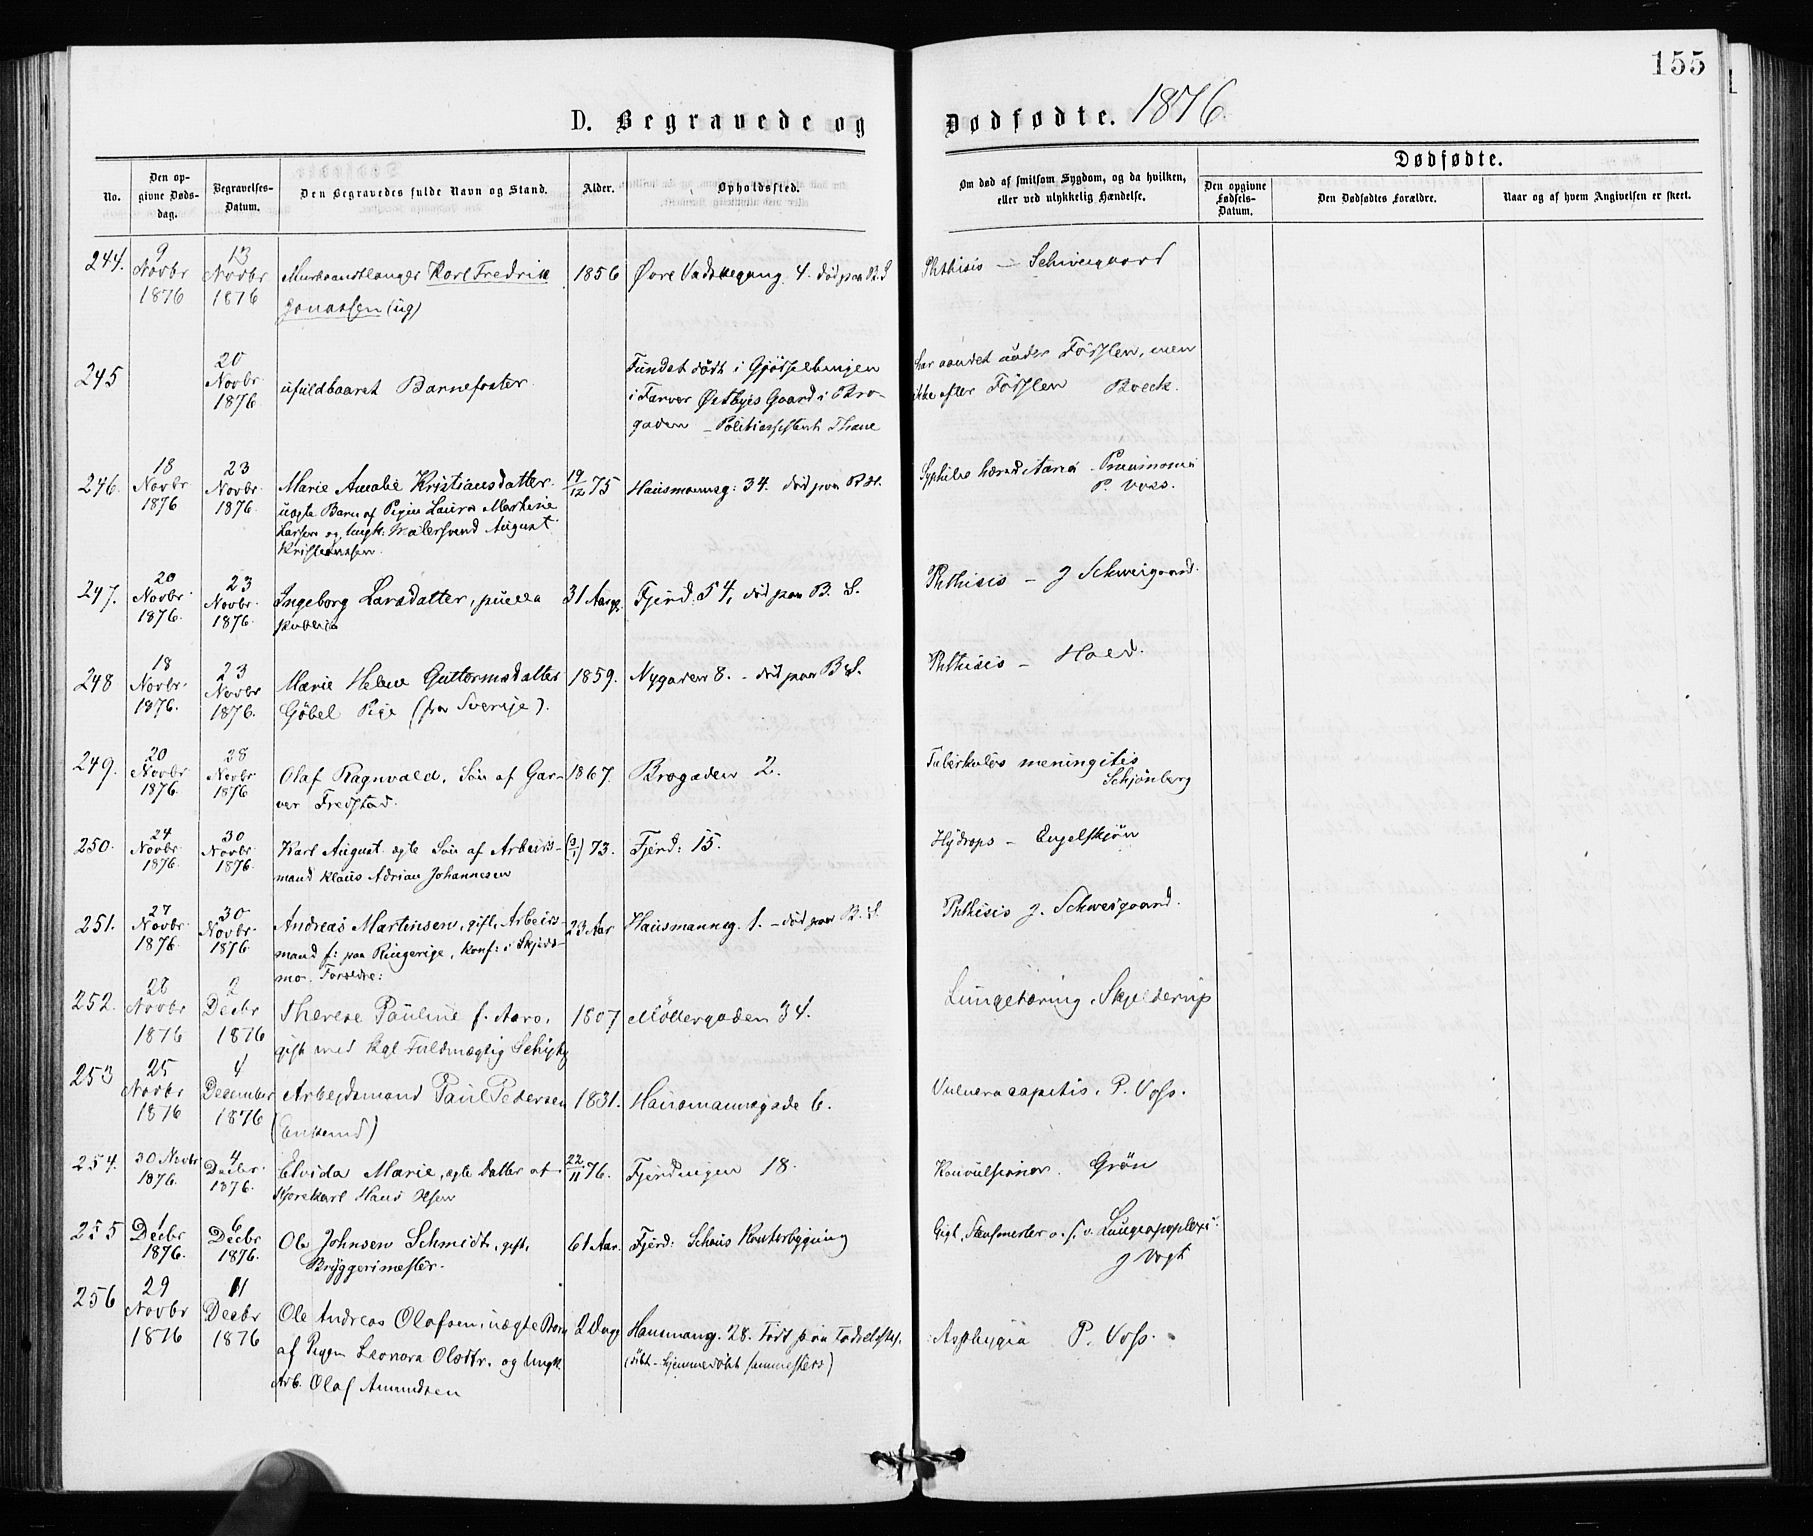 155
D. Begravede og Dødfødte. 1876.
No.
Den opgivne Dødsdag.
Begravelses-Datum.
Den Begravedes fulde Navn og Stand.
Alder.
Opholdssted.
Om død af smitsom Sygdom, og da hvilken, eller ved ulykkelig Hændelse.
Dødfødte.
Den opgivne Fødsels-Datum.
Den Dødfødtes Forældre.
Naar og af hvem Angivelsen er skeet.
244. 9 Novbr 1876 13 Novbr 1876 Murhaandlanger Karl Fredrik 1856 Øvre Vadskegang 4. død paa B.S Phthisis — Schweigaard
Jonassen (ug)
245 20 Novbr 1876 ufuldbaaret Barnefoster. Fundet dødt i Gjødselbingen Har aandet under Fødslen, men
i Farver Østbyes Gaard i Bro- ikke efter Fødslen Boeck.
gaden — Politiassistent Thane
246. 18 Novbr 1876 23 Novbr. 1876. Marie Amalie Kristiansdatter. 19/12 75 Hausmannsg: 34. død paa R.H. Syphilis hæreditaria Pneumonia
uægte Barn af Pigen Laura Martine P. Voss.
Larsen og Ungk. Malersvend August
Kristiansen.
247. 20 Novbr. 1876. 23 Novbr. 1876. Ingeborg Larsdatter, puella 31 Aar Fjerd. 54, død paa B. S. Phthisis — J Schweigaard.
publica
248 18 Novbr. 1876. 23 Novbr 1876. Marie Helene Guttormsdatter 1859. Nygaden 8. — død paa B.S. Phthisis — Hald.
Göbel Pige (fra Sverige).
249. 20 Novbr 1876. 28 Novbr 1876 Olaf Ragnvald, Søn af Gar- 1867. Brogaden 2. Tuberkuløs meningitis
ver Fredstad. Schjønberg
250. 24 Novbr 1876. 30 Novbr. 1876. Karl August ægte Søn af Arbeids- 73. Fjerd: 15. Hydrops — Engelskjøn
mand Klaus Adrian Johannesen
251. 27 Novbr 1876 30 Novbr. 1876 Andreas Martinsen, gift, Arbeids- 23 Aar Hausmannsg. 1. — død paa B.S. Phthisis J. Schweigaard.
mand f: paa Ringerige, konf: i Skjeds-
mo. Forældre:
252. 28 Novbr 1876 2 Decbr 1876 Therese Pauline f. Aars, 1807 Møllergaden 34. Lungetæring, Skjelderup
gift med Kgl Fuldmægtig Schiøtz
253 25 Novbr 1876 4 December 1876 Arbejdsmand Paul Pedersen 1831. Hausmannsgade 6. Vulnera capitis, P. Voss.
(Enkemd)
254. 30 Novbr 1876. 4 Decbr. 1876. Elvida Marie, ægte Datter af 22/11 76. Fjerdingen 18. Konvulsioner. Grøn
Kjørekarl Hans Olsen
255 1 Decbr 1876. 6 Decbr 1876. Ole Johnsen Schmidt, gift, 61 Aar. Fjerd: Schous Kontorbygning Gigt, Stenfnester o. s. v. Lungeapoplexi.
Bryggerimester. J Vogt
256 29 Novbr 1876 11 Decbr 1876 Ole Andreas Olafsen, uægte Barn 2 Dage Hausmansg. 28. Født paa Fødselsst. Asphyxia P. Voss.
af Pigen Leonora Olsdtr. og Ungk (død hjemme sammesteds)
Arb. Olaf Amundsen